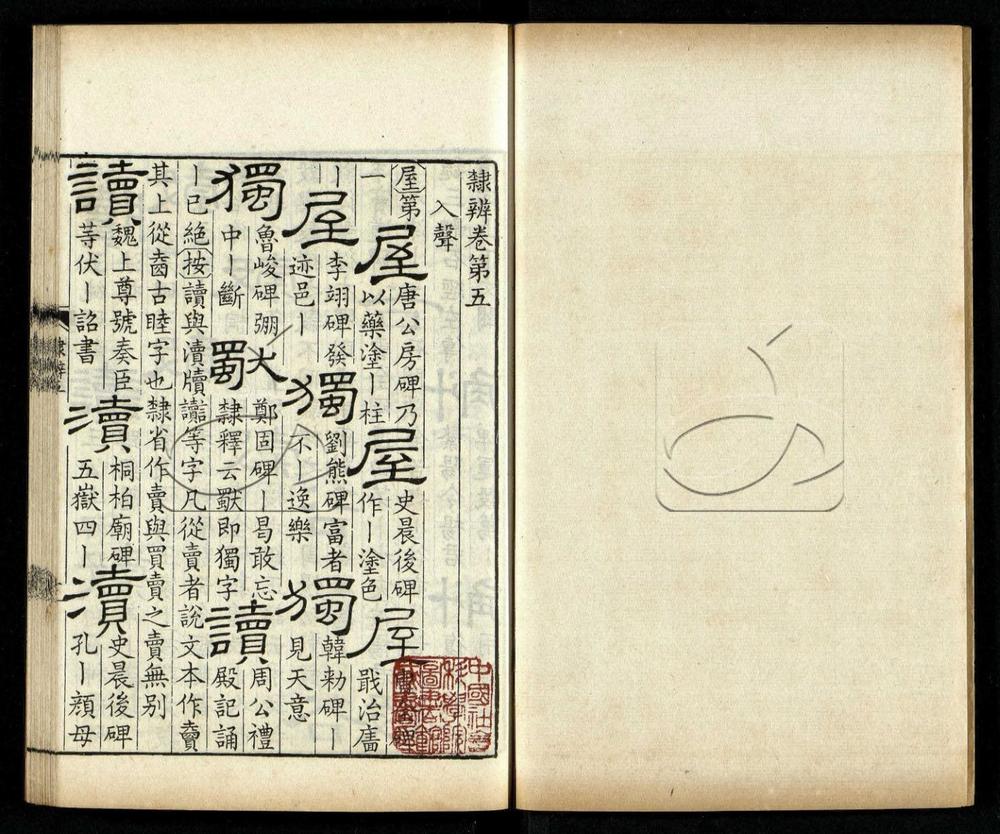 隸辨卷第五
入聲
屋第一屋唐公房碑乃以藥塗丨柱屋史晨後碑作丨塗色屋碑戢治廧
丨屋李翊碑發迹邑丨獨劉熊碑富者不逸樂獨韓勑碑丨見天意
獨魯峻碑弸中丨斷獸鄭固碑丨曷敢忘隸釋云獸即獨字讀周公禮殿記誦
丨已絕按讀與瀆牘讟等字凡從賣者說文本作賣其上從㚆古睦字也隸省作賣與買賣之賣無別
讀魏上尊號奏臣等伏丨詔書瀆桐柏廟碑五嶽四丨瀆史晨後碑孔丨顏母